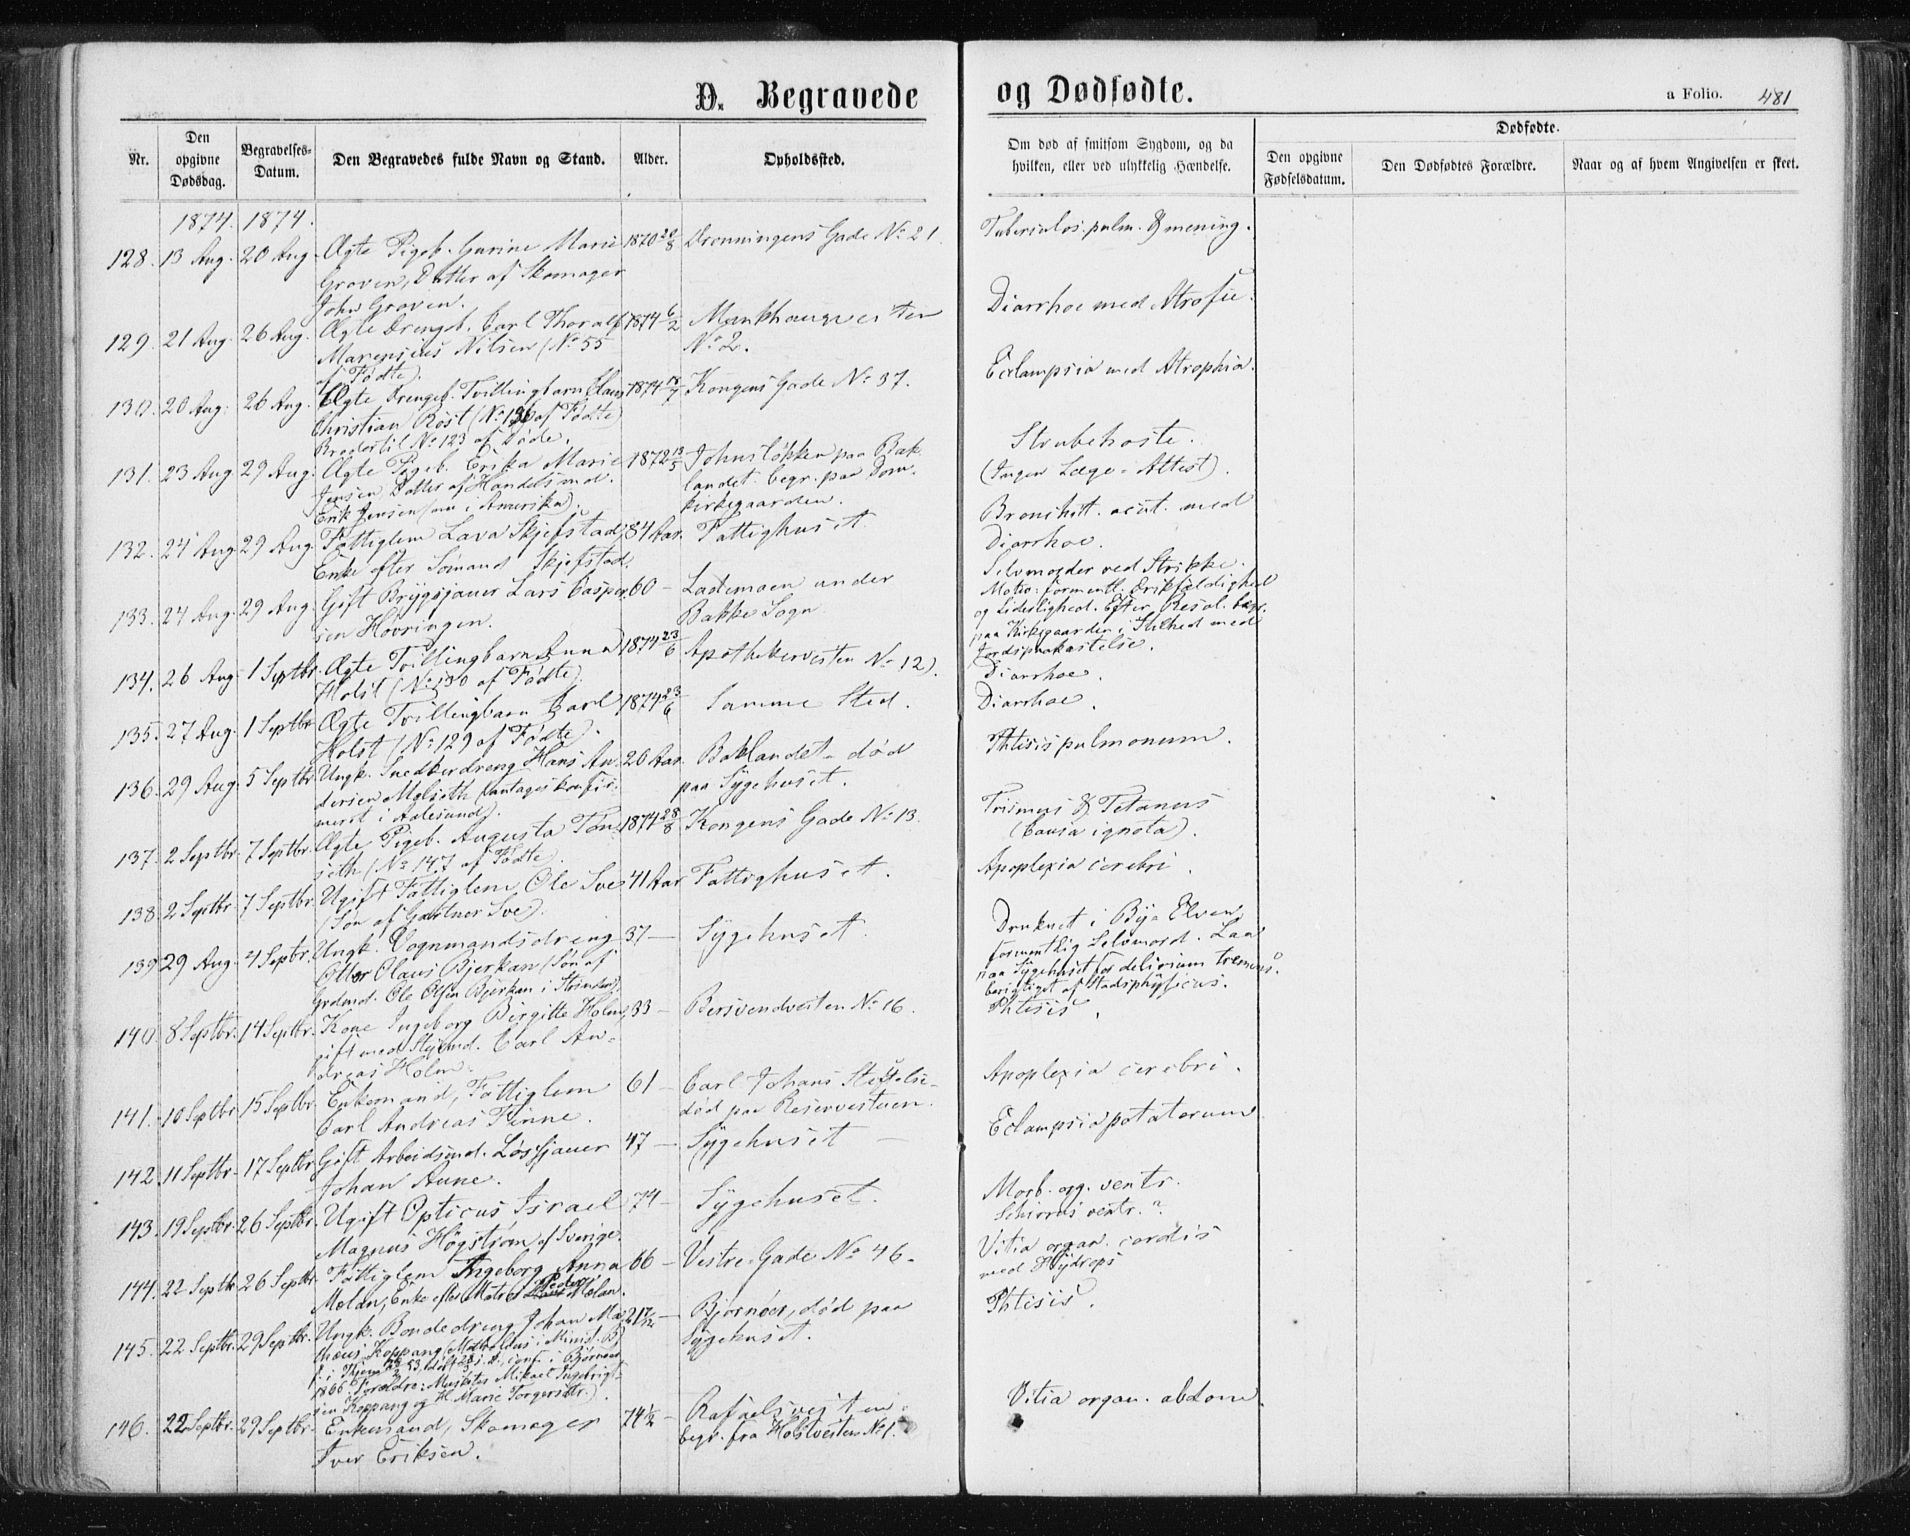 D. Begravede og Dødfødte.
a Folio. 481
Nr.
Den opgivne Dødsdag.
Begravelses-Datum.
Den Begravedes fulde Navn og Stand.
Alder.
Opholdssted.
Om død af smitsom Sygdom, og da hvilken, eller ved ulykkelig Hændelse.
Dødfødte.
Den opgivne Fødselsdatum.
Den Dødfødtes Forældre.
Naar og af hvem Angivelsen er skeet.
1874. 1874.
128. 13 Aug. 20 Aug. Ægte Pigeb. Gurine Marie 1870 20/8 Dronningens Gade No 21. Tuberculos. pulm. & mening.
Groven, Datter af Skomager
John Groven.
129. 21 Aug. 26 Aug. Ægte Drengeb. Carl Thoralf 1874 6/2 Munkhaugvesten Diarrhoe med Atrofie.
Marensius Nilsen (No 55 No 2.
af Fødte).
130. 20 Aug. 26 Aug. Ægte Drengeb. Tvillingbarn Claus 1874 18/7 Kongens Gade No 37. Eclampsia med Atrophia.
Christian Røst (No 136 af Fødte)
Broder til No 123 af Døde.
131. 23 Aug. 29 Aug. Ægte Pigeb. Erika Marie 1872 13/5 Johnsløkken paa Bak- Strubehoste.
Jensen Datter af Handelsmd. landet begr. paa Dom- (Ingen Læge-Attest).
Erik Jensen (nu i Amerika). kirkegaarden.
132. 24 Aug. 29 Aug. Fattiglem Lava Skjefstad, 84 Aar. Fattighuset Bronchit. acut. med
Enke efter Sømand Skjefstad. Diarrhoe.
133. 24 Aug. 29 Aug. Gift Brygsjauer Lars Casper- 60 — Lademoen under Selvmorder ved Strikke.
sen Høvringen. Bakke Sogn Motiv: formentl. Drikfældighed
og Liderlighed. Efter Resol. begr.
paa Kirkegaarden i Stilhed med
Jordspaakastelse.
134. 26 Aug. 1 Septbr. Ægte Tvillingbarn Anna 1874 23/6 Apothekervesten No 12). Diarrhoe.
Holst (No 130 af Fødte).
135. 27 Aug. 1 Septbr. Ægte Tvillingbarn Carl 1874 23/6 Samme Sted. Diarrhoe.
Holst (No 129 af Fødte).
136. 29 Aug. 5 Septbr. Ungk. Snedkerdreng Hans An- 20 Aar. Baklandet - død Phtisis pulmonum.
dersen Melseth (antages konfir- paa Sygehuset.
meret i Aalesund).
137. 2 Septbr. 7 Septbr. Ægte Pigeb. Augusta Tøn- 1874 28/8 Kongens Gade No 13. Trismus & Tetanus
seth (No 147 af Fødte). (Causa ignota).
138. 2 Septbr. 7 Septbr. Ugift Fattiglem Ole Sve 41 Aar Fattighuset. Apoplexia cerebri.
(Søn af Gartner Sve).
139. 29 Aug. 4 Septbr. Ungk. Vognmandsdreng 37 — Sygehuset. Druknet i By-Elven
Otter Olaus Bjerkan (Søn af formentlig Selvmord. Laa
Grdmd. Ole Olsen Bjerkan i Strinden). paa Sygehuset for delirium tremens.
berigtiget af Stadsphysicus.
140. 8 Septbr. 14 Septbr. Kone Ingeborg Birgitte Holm, 33 — Bersvendvesten No 16. Phtisis.
gift med Styrmd. Carl An-
dreas Holm.
141. 10 Septbr. 15 Septbr. Enkemand, Fattiglem 61 — Carl Johans Stiftelse - Apoplexia cerebri.
Carl Andreas Finne. død paa Reservestuen.
142. 11 Septbr. 17 Septbr. Gift Arbeidsmd. Løssjauer 47 — Sygehuset — Eclampsia potatorum
Johan Aune.
143. 19 Septbr. 26 Septbr. Ugift Opticus Israel 74 — Sygehuset. Morb. org. ventr.
Magnus Högström af Sverige. Schirrus ventr.?
144. 22 Septbr. 26 Septbr. Fattiglem Ingeborg Anna 66 — Vestre Gade No 46. Vitia organ. cordis
Melan, Enke efter Matr. Peder Melan. med Hydrops
145. 22 Septbr. 29 Septbr. Ungk. Bondedreng Johan Ma- 21 7/12 — Bjørnøer, død paa Phtisis.
thæus Koppang Sygehuset.
conf. i Bjørnøer
1866. Forældre: Mikael Ingebrigt-
sen Koppang og H. Marie Torgersdtr.).
146. 22 Septbr. 29 Septbr. Enkemand, Skomager 74 1/2 — Rafaelsvesten. Vitia organ. abdom.
Iver Eriksen. begr. fra Holstvesten No 1.